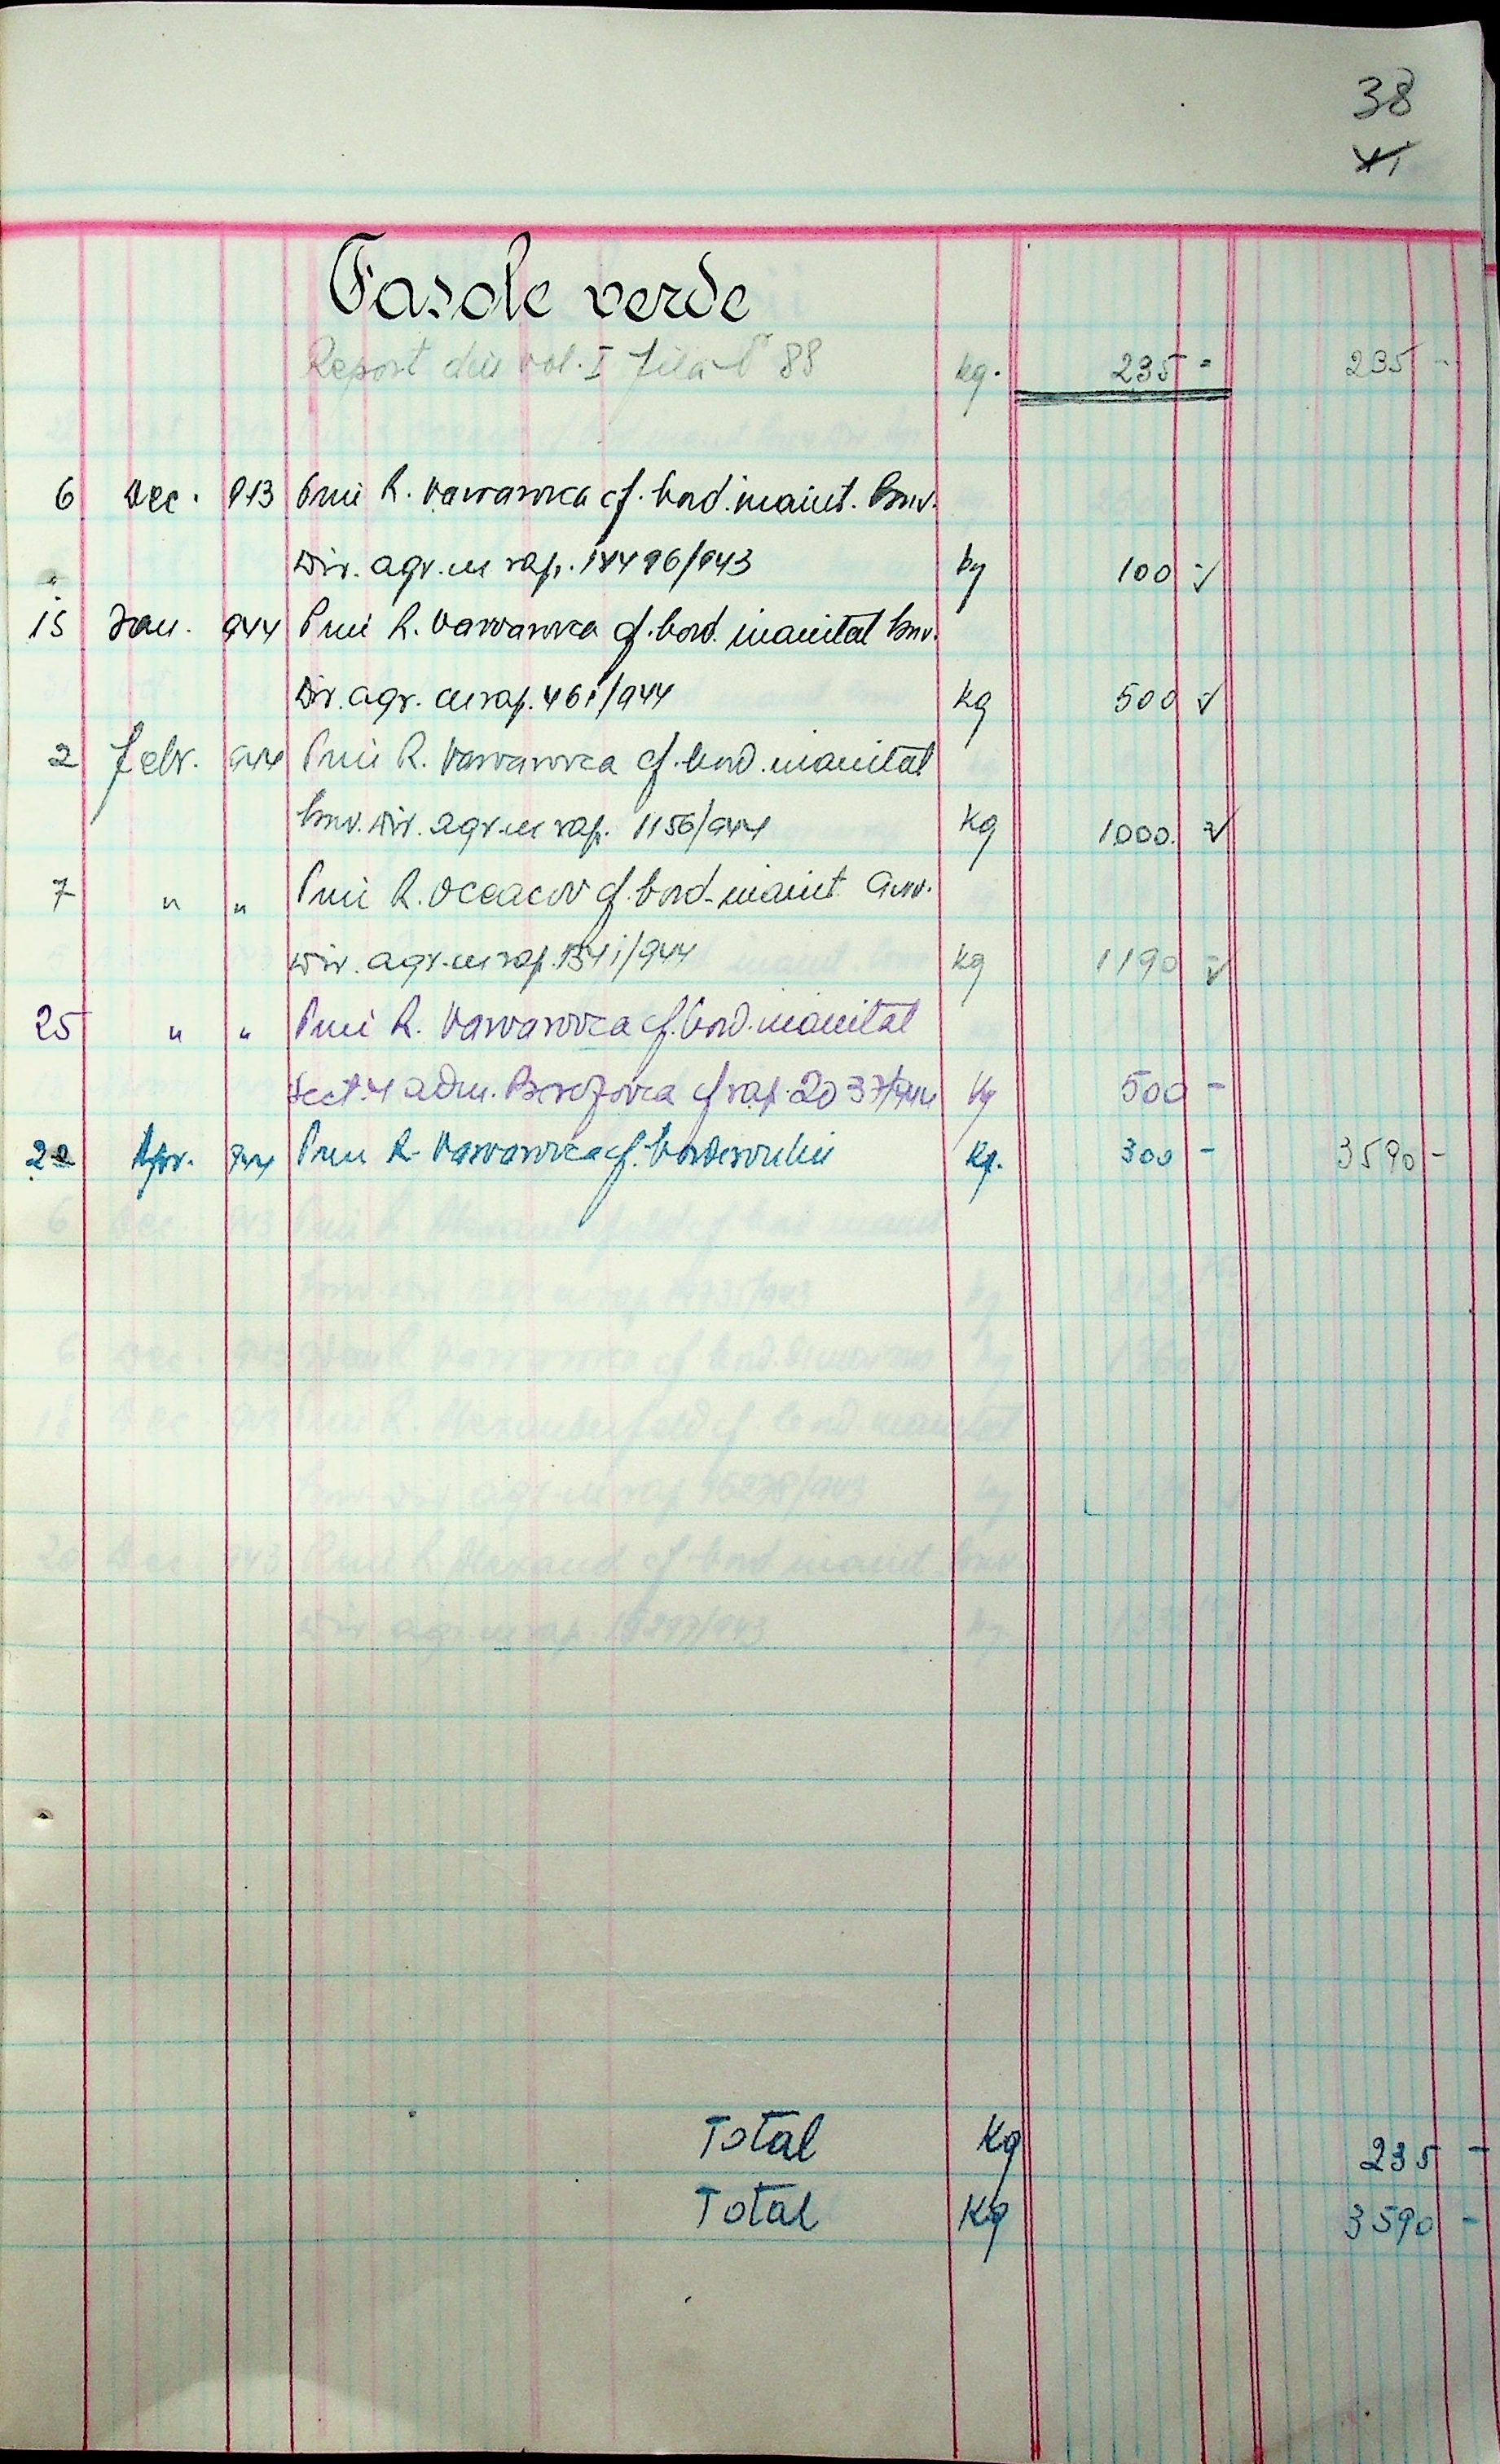 38
41
Fasole verde
Report din vol. I fila 88 kg. 235 = 235 -
6 Dec. 943 Prin R. Varvarovca cf. bord. inaint. Inv.
Dir. agr. cu rap. 14496/943 kg 100 -
15 Ian. 944 Prin R. Varvarovca cf. bord. inaintat Inv.
Dir. agr. cu rap. 461/944 kg 500 -
2 Febr. 944 Prin R. Varvarovca cf. bord. inaintat
Inv. Dir. agr. cu rap. 1156/944 kg 1000 -
7 " " Prin R. Oceacov cf. bord. inaint
Dir. agr. cu rap. 1341/944 kg 1190 -
25 " " Prin R. Varvarovca cf. bord. inaintat
Sect. 4 adm. Berezovca cf rap. 2037/944 kg 500 -
22 Apr. 944 Prin R. Varvarovca cf. borderoului kg. 300 - 3590 -
Total kg 235 -
Total kg 3590 -